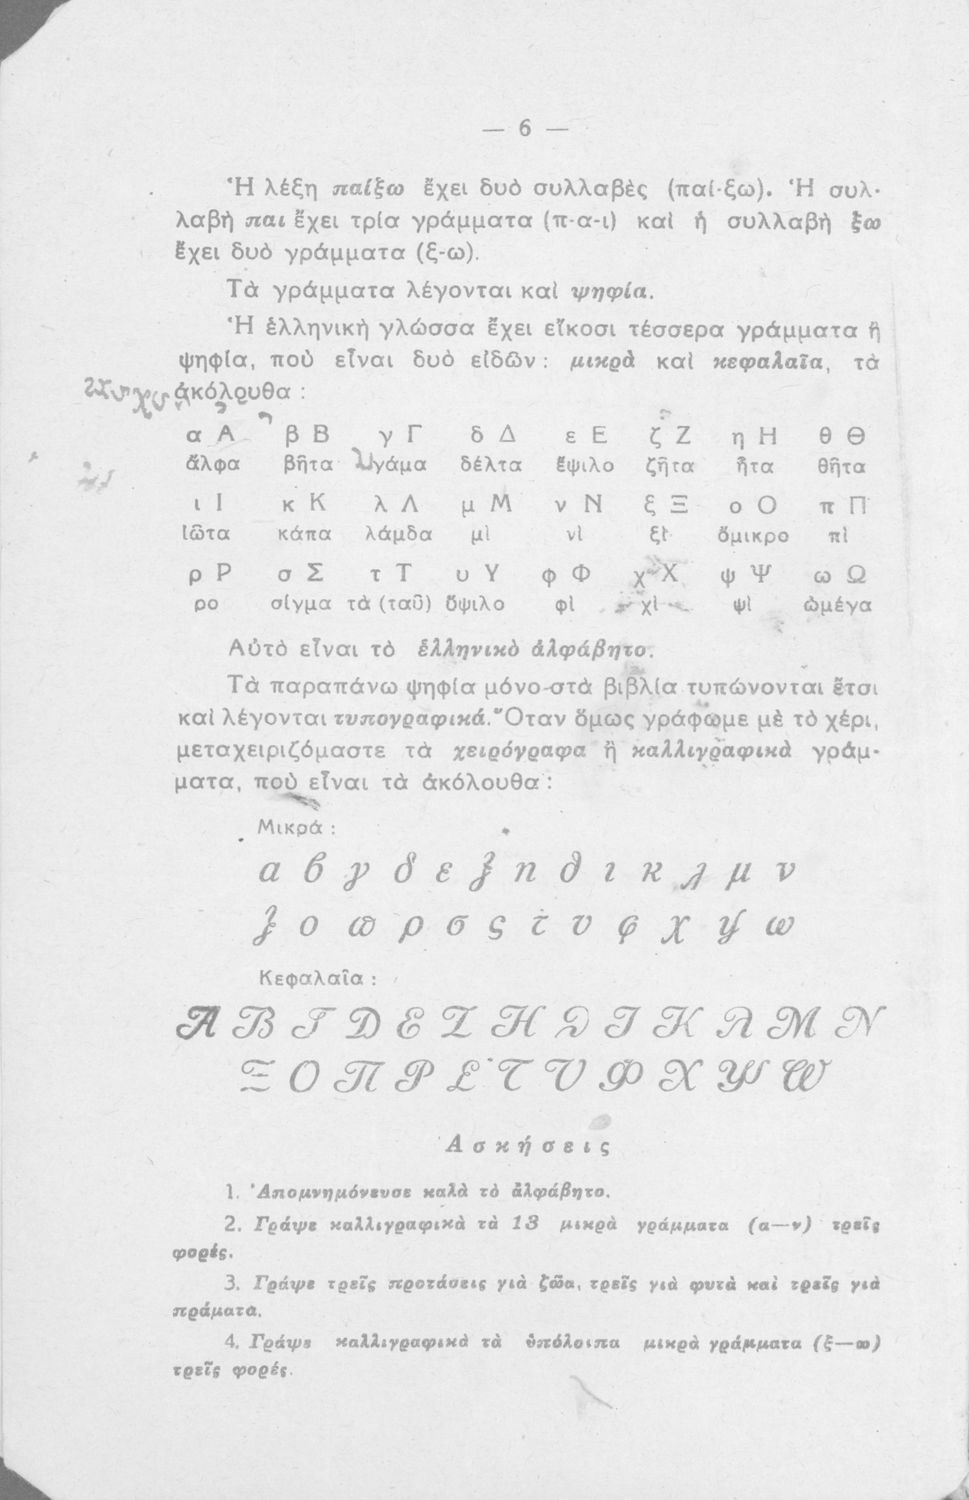 — 6 —
Ἡ λέξη παίξω ἔχει δυὸ συλλαβὲς (παί-ξω). Ἡ συλ-
λαβὴ παι ἔχει τρία γράμματα (π-α-ι) καὶ ἡ συλλαβὴ ξω
ἔχει δυὸ γράμματα (ξ-ω).
Τὰ γράμματα λέγονται καὶ ψηφία.
Ἡ ἑλληνικὴ γλώσσα ἔχει εἴκοσι τέσσερα γράμματα ἢ
ψηφία, ποὺ εἶναι δυὸ εἰδῶν: μικρὰ καὶ κεφαλαῖα, τὰ
ἀκόλουθα :
α Α β Β γ Γ δ Δ ε Ε ζ Ζ η Η θ Θ
ἄλφα βῆτα γάμα δέλτα ἔψιλο ζῆτα ἦτα θῆτα
ι Ι κ Κ λ Λ μ Μ ν Ν ξ Ξ ο Ο π Π
ἰῶτα κάπα λάμδα μὶ νὶ ξὶ ὄμικρο πὶ
ρ Ρ σ Σ τ Τ υ Υ φ Φ χ Χ ψ Ψ ω Ω
ρο σίγμα τὰ (ταῦ) ὄψιλο φὶ χὶ ψὶ ὠμέγα
Αὐτὸ εἶναι τὸ ἑλληνικὸ ἀλφάβητο.
Τὰ παραπάνω ψηφία μόνο στὰ βιβλία τυπώνονται ἔτσι
καὶ λέγονται τυπογραφικά. Ὅταν ὅμως γράφωμε μὲ τὸ χέρι,
μεταχειριζόμαστε τὰ χειρόγραφα ἢ καλλιγραφικὰ γράμ-
ματα, ποὺ εἶναι τὰ ἀκόλουθα :
Μικρά :
α β γ δ ε ζ η θ ι κ λ μ ν
ξ ο π ρ σ ς τ υ φ χ ψ ω
Κεφαλαῖα :
Α Β Γ Δ Ε Ζ Η Θ Ι Κ Λ Μ Ν
Ξ Ο Π Ρ Σ Τ Υ Φ Χ Ψ Ω
Ἀσκήσεις
1. Ἀπομνημόνευσε καλὰ τὸ ἀλφάβητο.
2. Γράψε καλλιγραφικὰ τὰ 13 μικρὰ γράμματα (α—ν) τρεῖς
φορές.
3. Γράψε τρεῖς προτάσεις γιὰ ζῶα, τρεῖς γιὰ φυτὰ καὶ τρεῖς γιὰ
πράματα.
4. Γράψε καλλιγραφικὰ τὰ ὑπόλοιπα μικρὰ γράμματα (ξ—ω)
τρεῖς φορές.